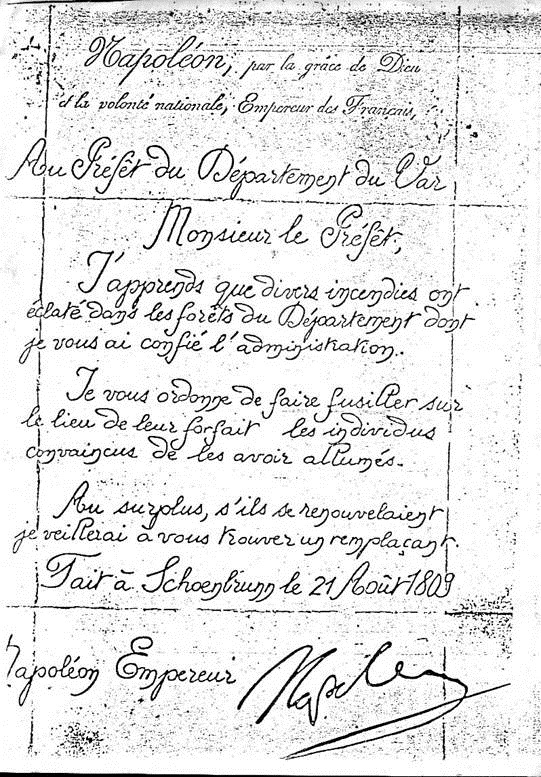 Napoléon, par la grâce de Dieu
et la volonté nationale, Empereur des Français,
Au Préfêt du Département du Var
Monsieur le Préfêt,
J'apprends que divers incendies ont
éclaté dans les forêts du Département dont
je vous ai confié l'administration.
Je vous ordonne de faire fusiller sur
le lieu de leur forfait les individus
convaincus de les avoir allumés.
Au surplus, s'ils se renouvelaient
je veillerai à vous trouver un remplaçant.
Fait à Schoenbrunn le 21 Août 1809
Napoléon Empereur
Napoléon